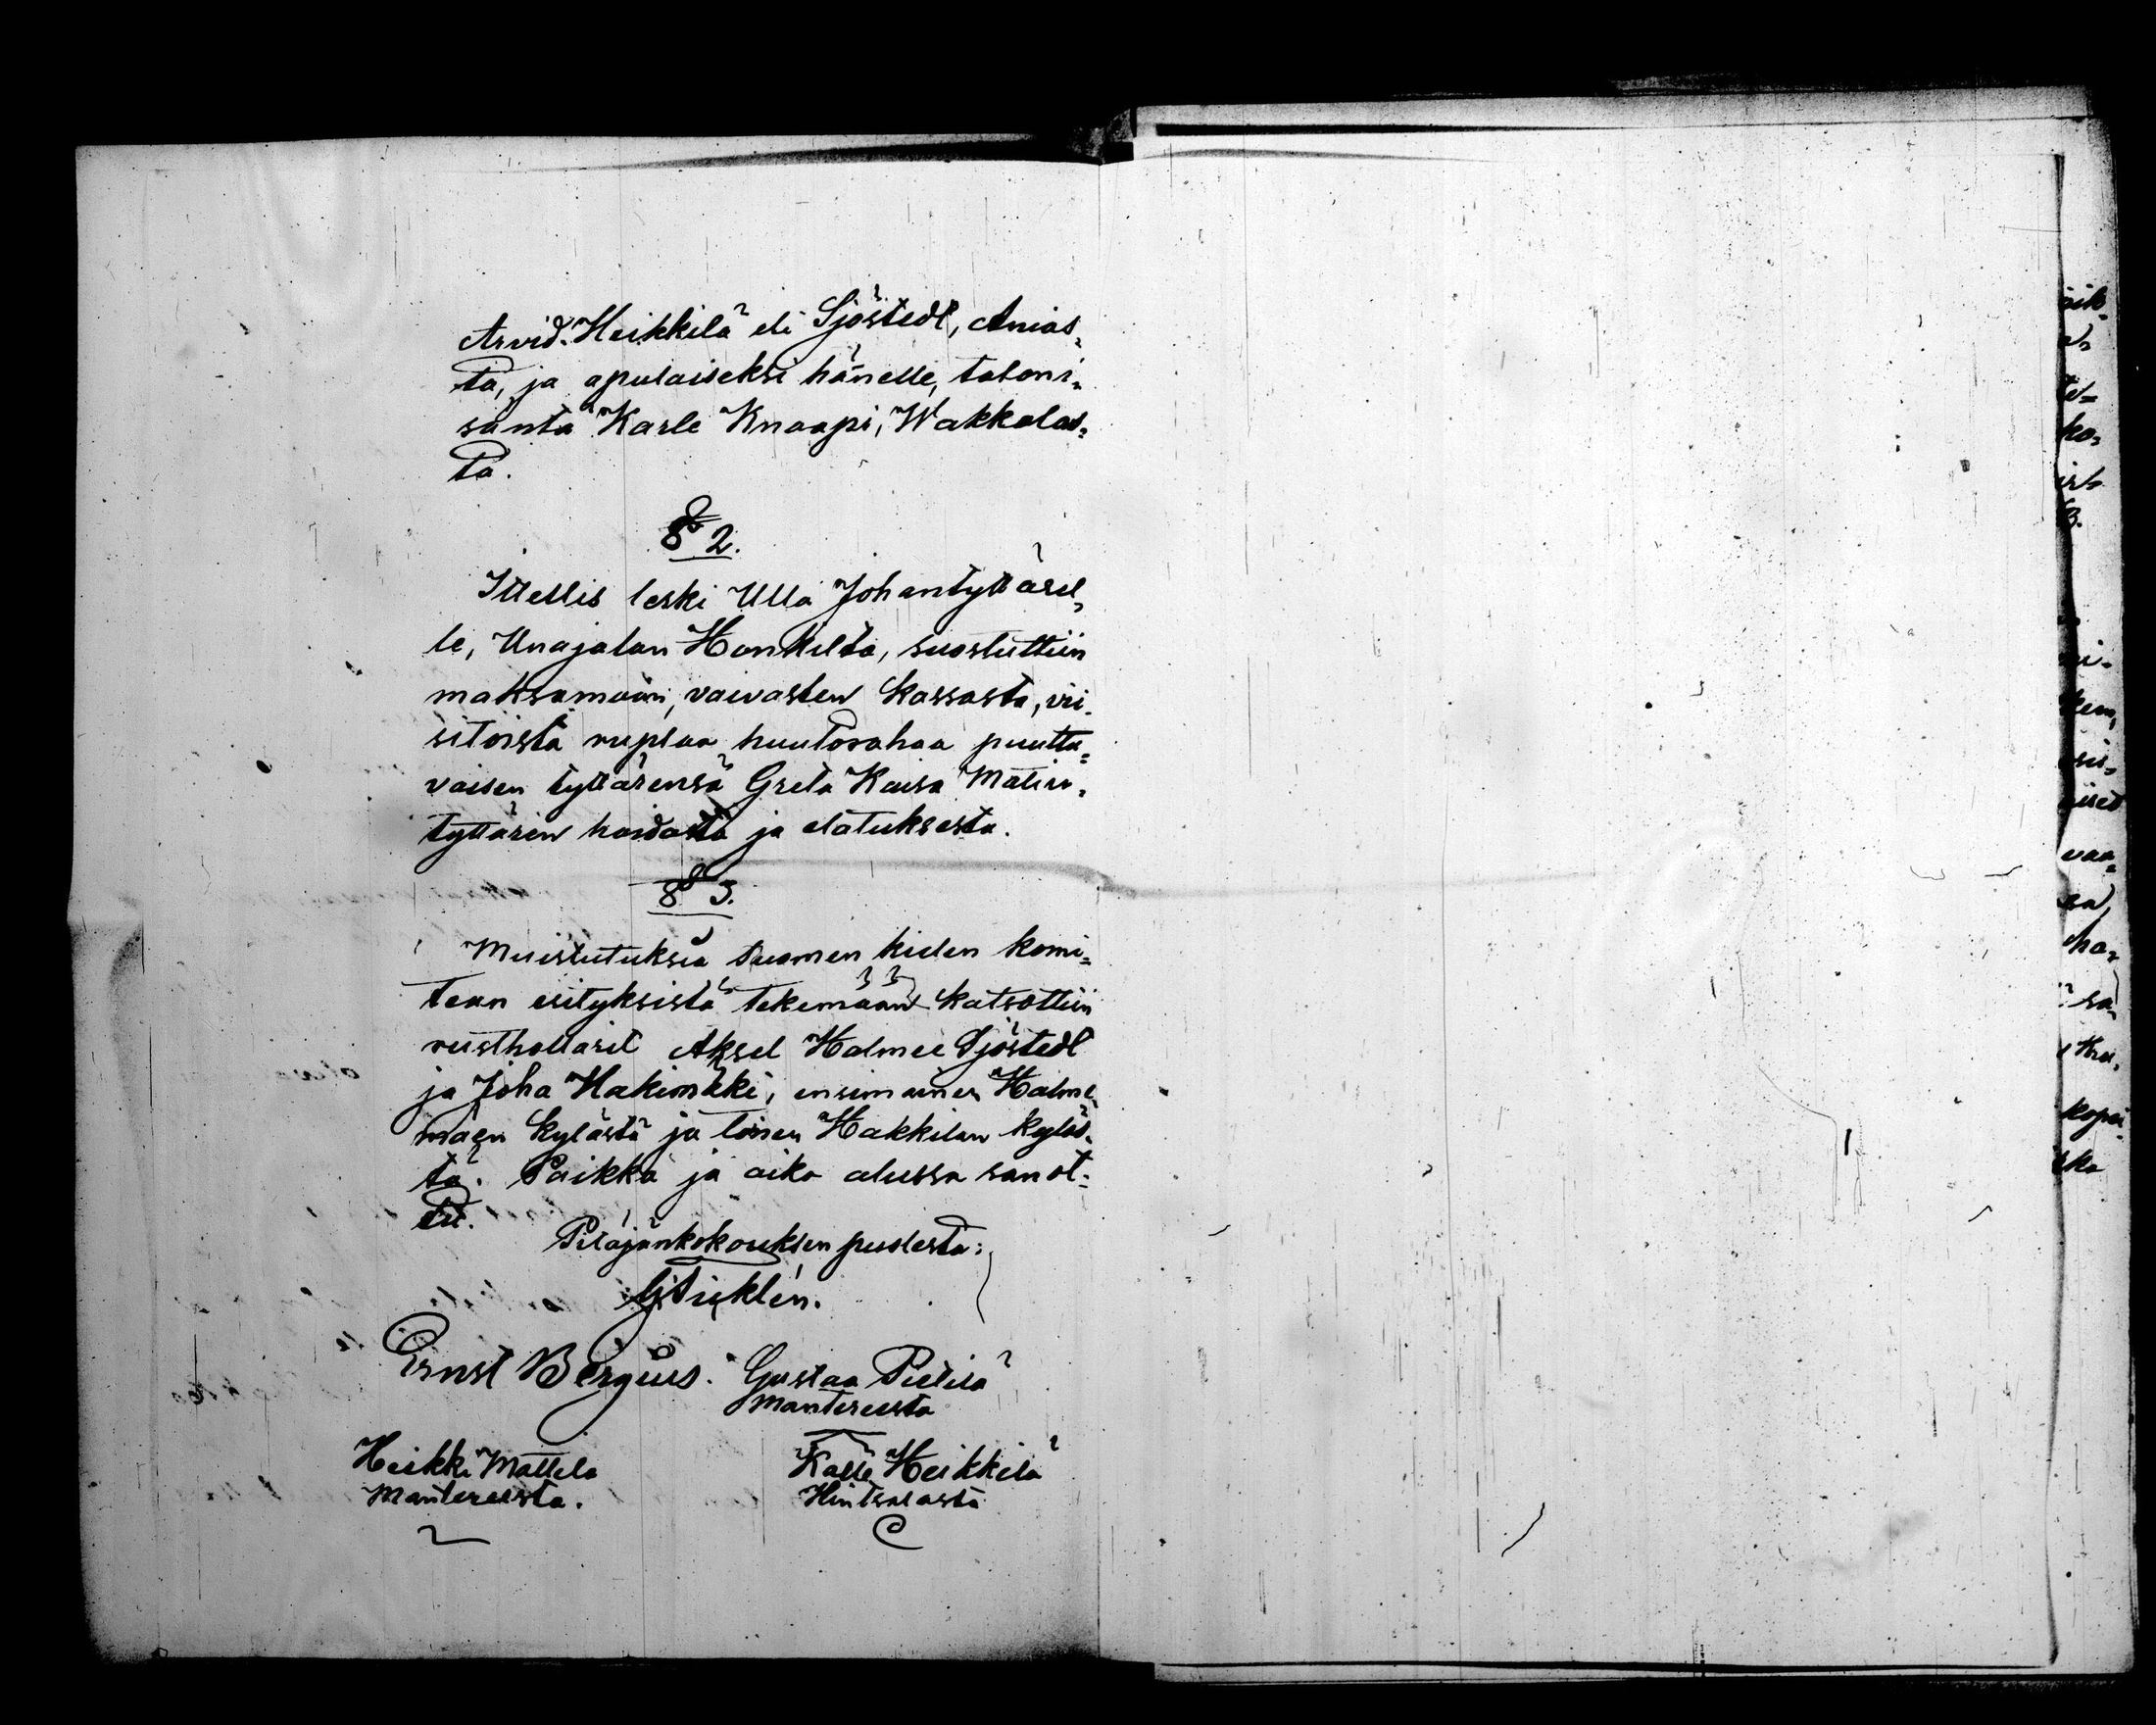 Arvid. Heikkilä eli Sjöstedt, Anias-
ta, ja apulaiseksi hänelle, taloni-
säntä Karle Knaapi, Wakkalas-
ta.
§ 2.
Itellis leski Ulla Johantyttärel-
le, Unajalan Honkilta, suostuttiin
maksamaan, vaivasten kassasta, vii-
sitoista ruplaa huutorahaa puuttu-
vaisen tyttärensä Greta Kaisa Matin-
tyttären hoidosta ja elatuksesta.
§ 3.
Muistutuksia Suomen kielen komi-
tean esityksistä tekemään katsottiin
rusthollarit Aksel Halmee Sjöstedt
ja Joha Hakimäki, ensimäinen Halme-
mäen kylästä ja toinen Hakkilan kyläs-
tä. Paikka ja aika alussa sanot-
tu.
Pitäjänkokouksen puolesta:
Ernst Bergius. Gustaa Pietilä
Mantereesta
Heikki Mattela
Mantereesta.
Kalle Heikkilä
Hintsalasta